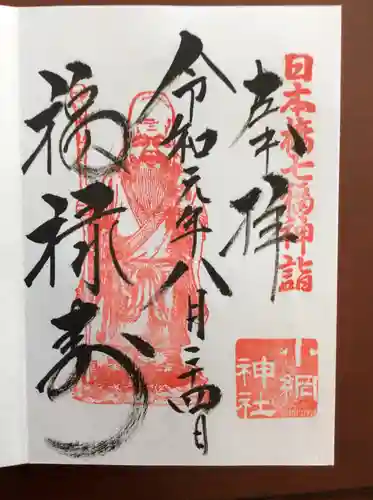 日本橋七福神詣
奉拝
令和元年八月二十四日
福禄寿
小網
神社